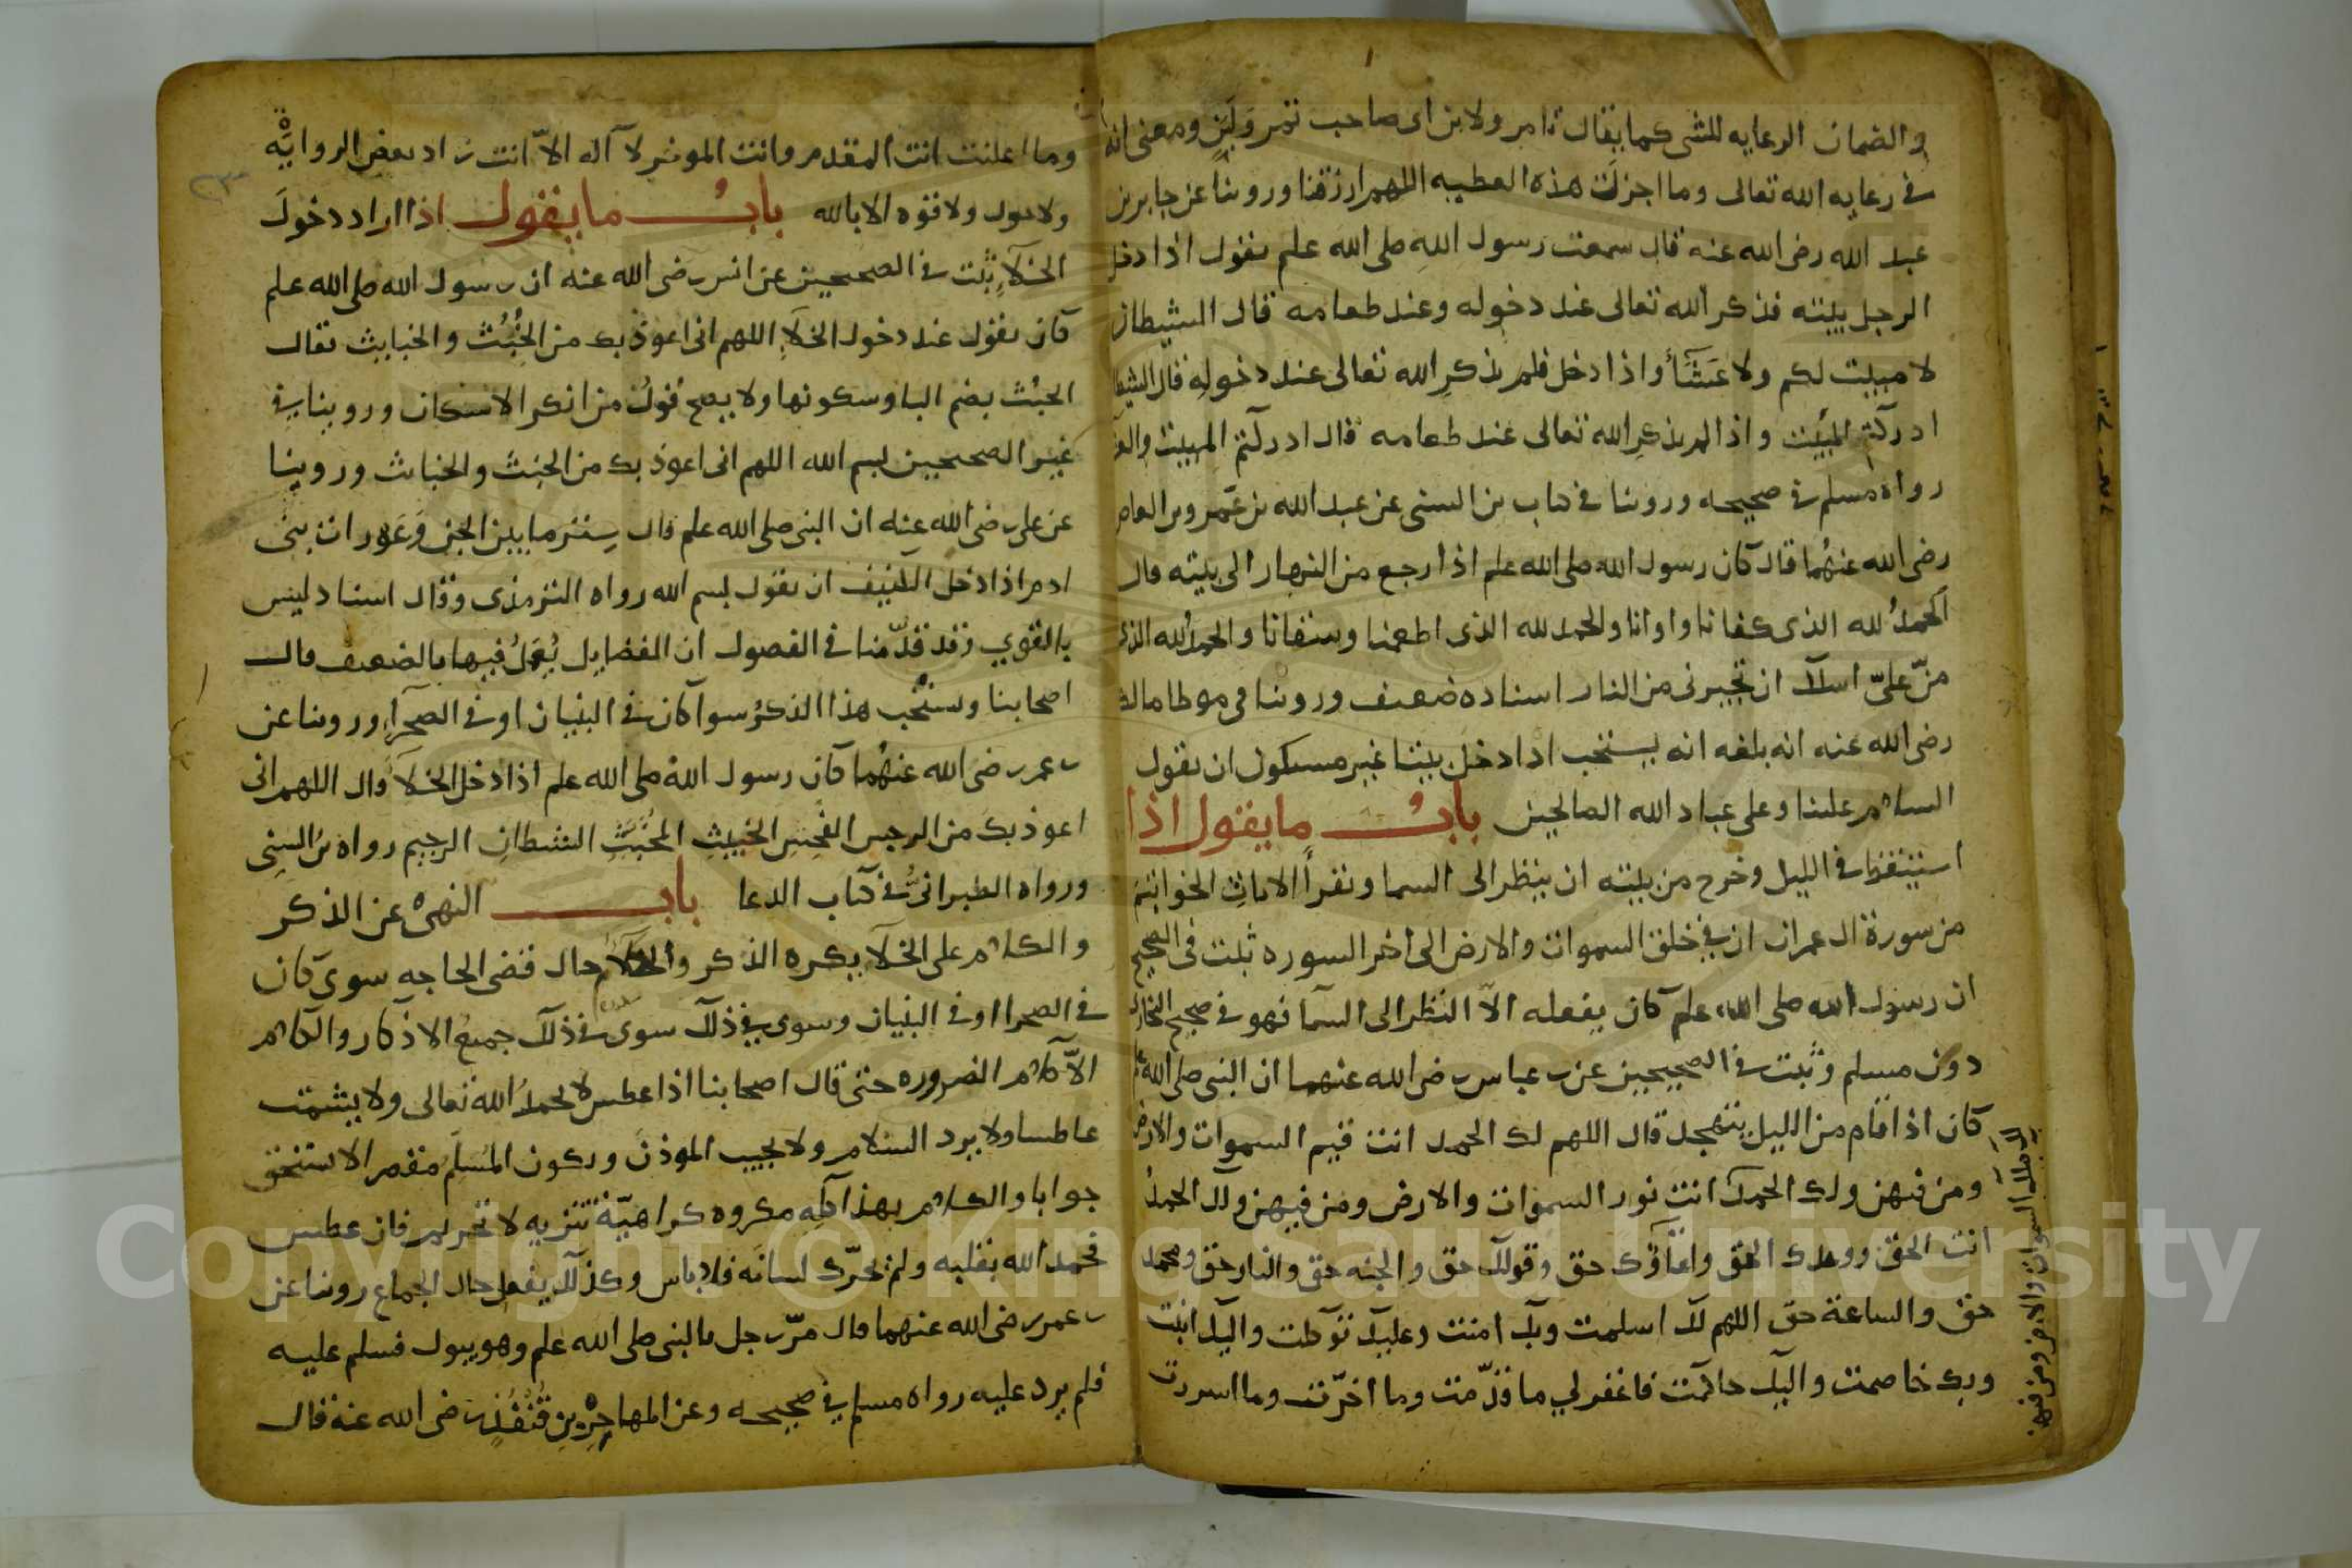 والضمان الرعايه للشى كما يقال تامر ولابن اى صاحب تمر ولبن ومعنى انه
فى رعايه الله تعالى وما اجزلت هذه العطيه اللهم ارزقنا وروينا عن جابر بن
عبد الله رضى الله عنه قال سمعت رسول الله صلى الله علم يقول اذا دخل
الرجل بيته فذكر الله تعالى عند دخوله وعند طعامه قال الشيطان
لا مبيت لكم ولا عشآ واذا دخل فلم يذكر الله تعالى عند دخوله قال الشيطا
ادركتم المبيت واذا لم يذكر الله تعالى عند طعامه قال ادركتم المبيت والعشا
رواه مسلم فى صحيحه وروينا فى كتاب بن السنى عن عبد الله بن عمرو بن العاص
رضى الله عنهما قال كان رسول الله صلى الله علم اذا رجع من النهار الى بيته قال
الحمد لله الذى كفانا واوانا والحمد لله الذى اطعمنا وسقانا والحمد لله الذى
من على اسلك ان تجيرنى من النار اسناده ضعيف وروينا فى موطا مالك
رضى الله عنه انه بلغه انه يستحب اذا دخل بيتا غير مسكون ان يقول
السلام علينا وعلى عباد الله الصالحين باب ما يقول اذا
استيقظ فى الليل وخرج من بيته ان ينظر الى السما ويقرأ الايات الخواتم
من سورة ال عمران ان فى خلق السموات والارض الى اخر السوره ثبت فى الصحيح
ان رسول الله صلى الله علم كان يفعله الا النظر الى السمآ فهو فى صحيح البخارى
دون مسلم وثبت فى الصحيحين عن بن عباس رضى الله عنهما ان النبى صلى الله علم
كان اذا قام من الليل يتهجد قال اللهم لك الحمد انت قيم السموات والارض
ومن فيهن ولك الحمد انت نور السموات والارض ومن فيهن ولك الحمد
انت الحق ووعدك الحق ولقاؤك حق وقولك حق والجنه حق والنار حق ومحمد
حق والساعة حق اللهم لك اسلمت وبك امنت وعليك توكلت واليك انبت
وبك خاصمت واليك حاكمت فاغفر لي ما قدمت وما اخرت وما اسررت
السموات والارض ومن فيهن
وما اعلنت انت المقدم وانت الموخر لا آله الا انت زاد بعض الرواية
ولا حول ولا قوه الا بالله باب ما يقول اذا اراد دخول
الخلآ ثبت فى الصحيحين عن انس رضى الله عنه ان رسول الله صلى الله علم
كان يقول عند دخول الخلآ اللهم انى اعوذ بك من الخبث والخبايث يقال
الخبث بضم البا وسكونها ولا يصح قول من انكر الاسكان وروينا فى
غير الصحيحين بسم الله اللهم انى اعوذ بك من الخبث والخبائث وروينا
عن على رضى الله عنه ان النبى صلى الله علم قال ستر ما بين الجن وعورات بنى
ادم اذا دخل الكنيف ان يقول بسم الله رواه الترمذى وقال اسناد ليس
بالقوي وقد قدمنا فى الفصول ان الفضايل يعمل فيها بالضعيف قال
اصحابنا ويستحب هذا الذكر سوا كان فى البنيان او فى الصحرآ وروينا عن
بن عمر رضى الله عنهما كان رسول الله صلى الله علم اذا دخل الخلآ قال اللهم انى
اعوذ بك من الرجس النجس الخبيث المخبث الشيطان الرجيم رواه بن السنى
ورواه الطبرانى فى كتاب الدعا باب النهى عن الذكر
والكلام على الخلآ يكره الذكر والكلام حال قضى الحاجه سوى كان
فى الصحرا او فى البنيان وسوى فى ذلك سوى فى ذلك جميع الاذكار والكلام
الا كلام الضروره حتى قال اصحابنا اذا عطس لا يحمد الله تعالى ولا يشمت
عاطسا ولا يرد السلام ولا يجيب الموذن ويكون المسلم مقصر لا يستحق
جوابا والكلام بهذا كله مكروه كراهية تنزيه لا تحريم فان عطس
فحمد الله بقلبه ولم يحرك لسانه فلا باس وكذلك يفعل حال الجماع روينا عن
بن عمر رضى الله عنهما قال مر رجل بالنبى صلى الله علم وهو يبول فسلم عليه
فلم يرد عليه رواه مسلم فى صحيحه وعن المهاجر بن قنفذ رضى الله عنه قال
Copyright © King Saud University